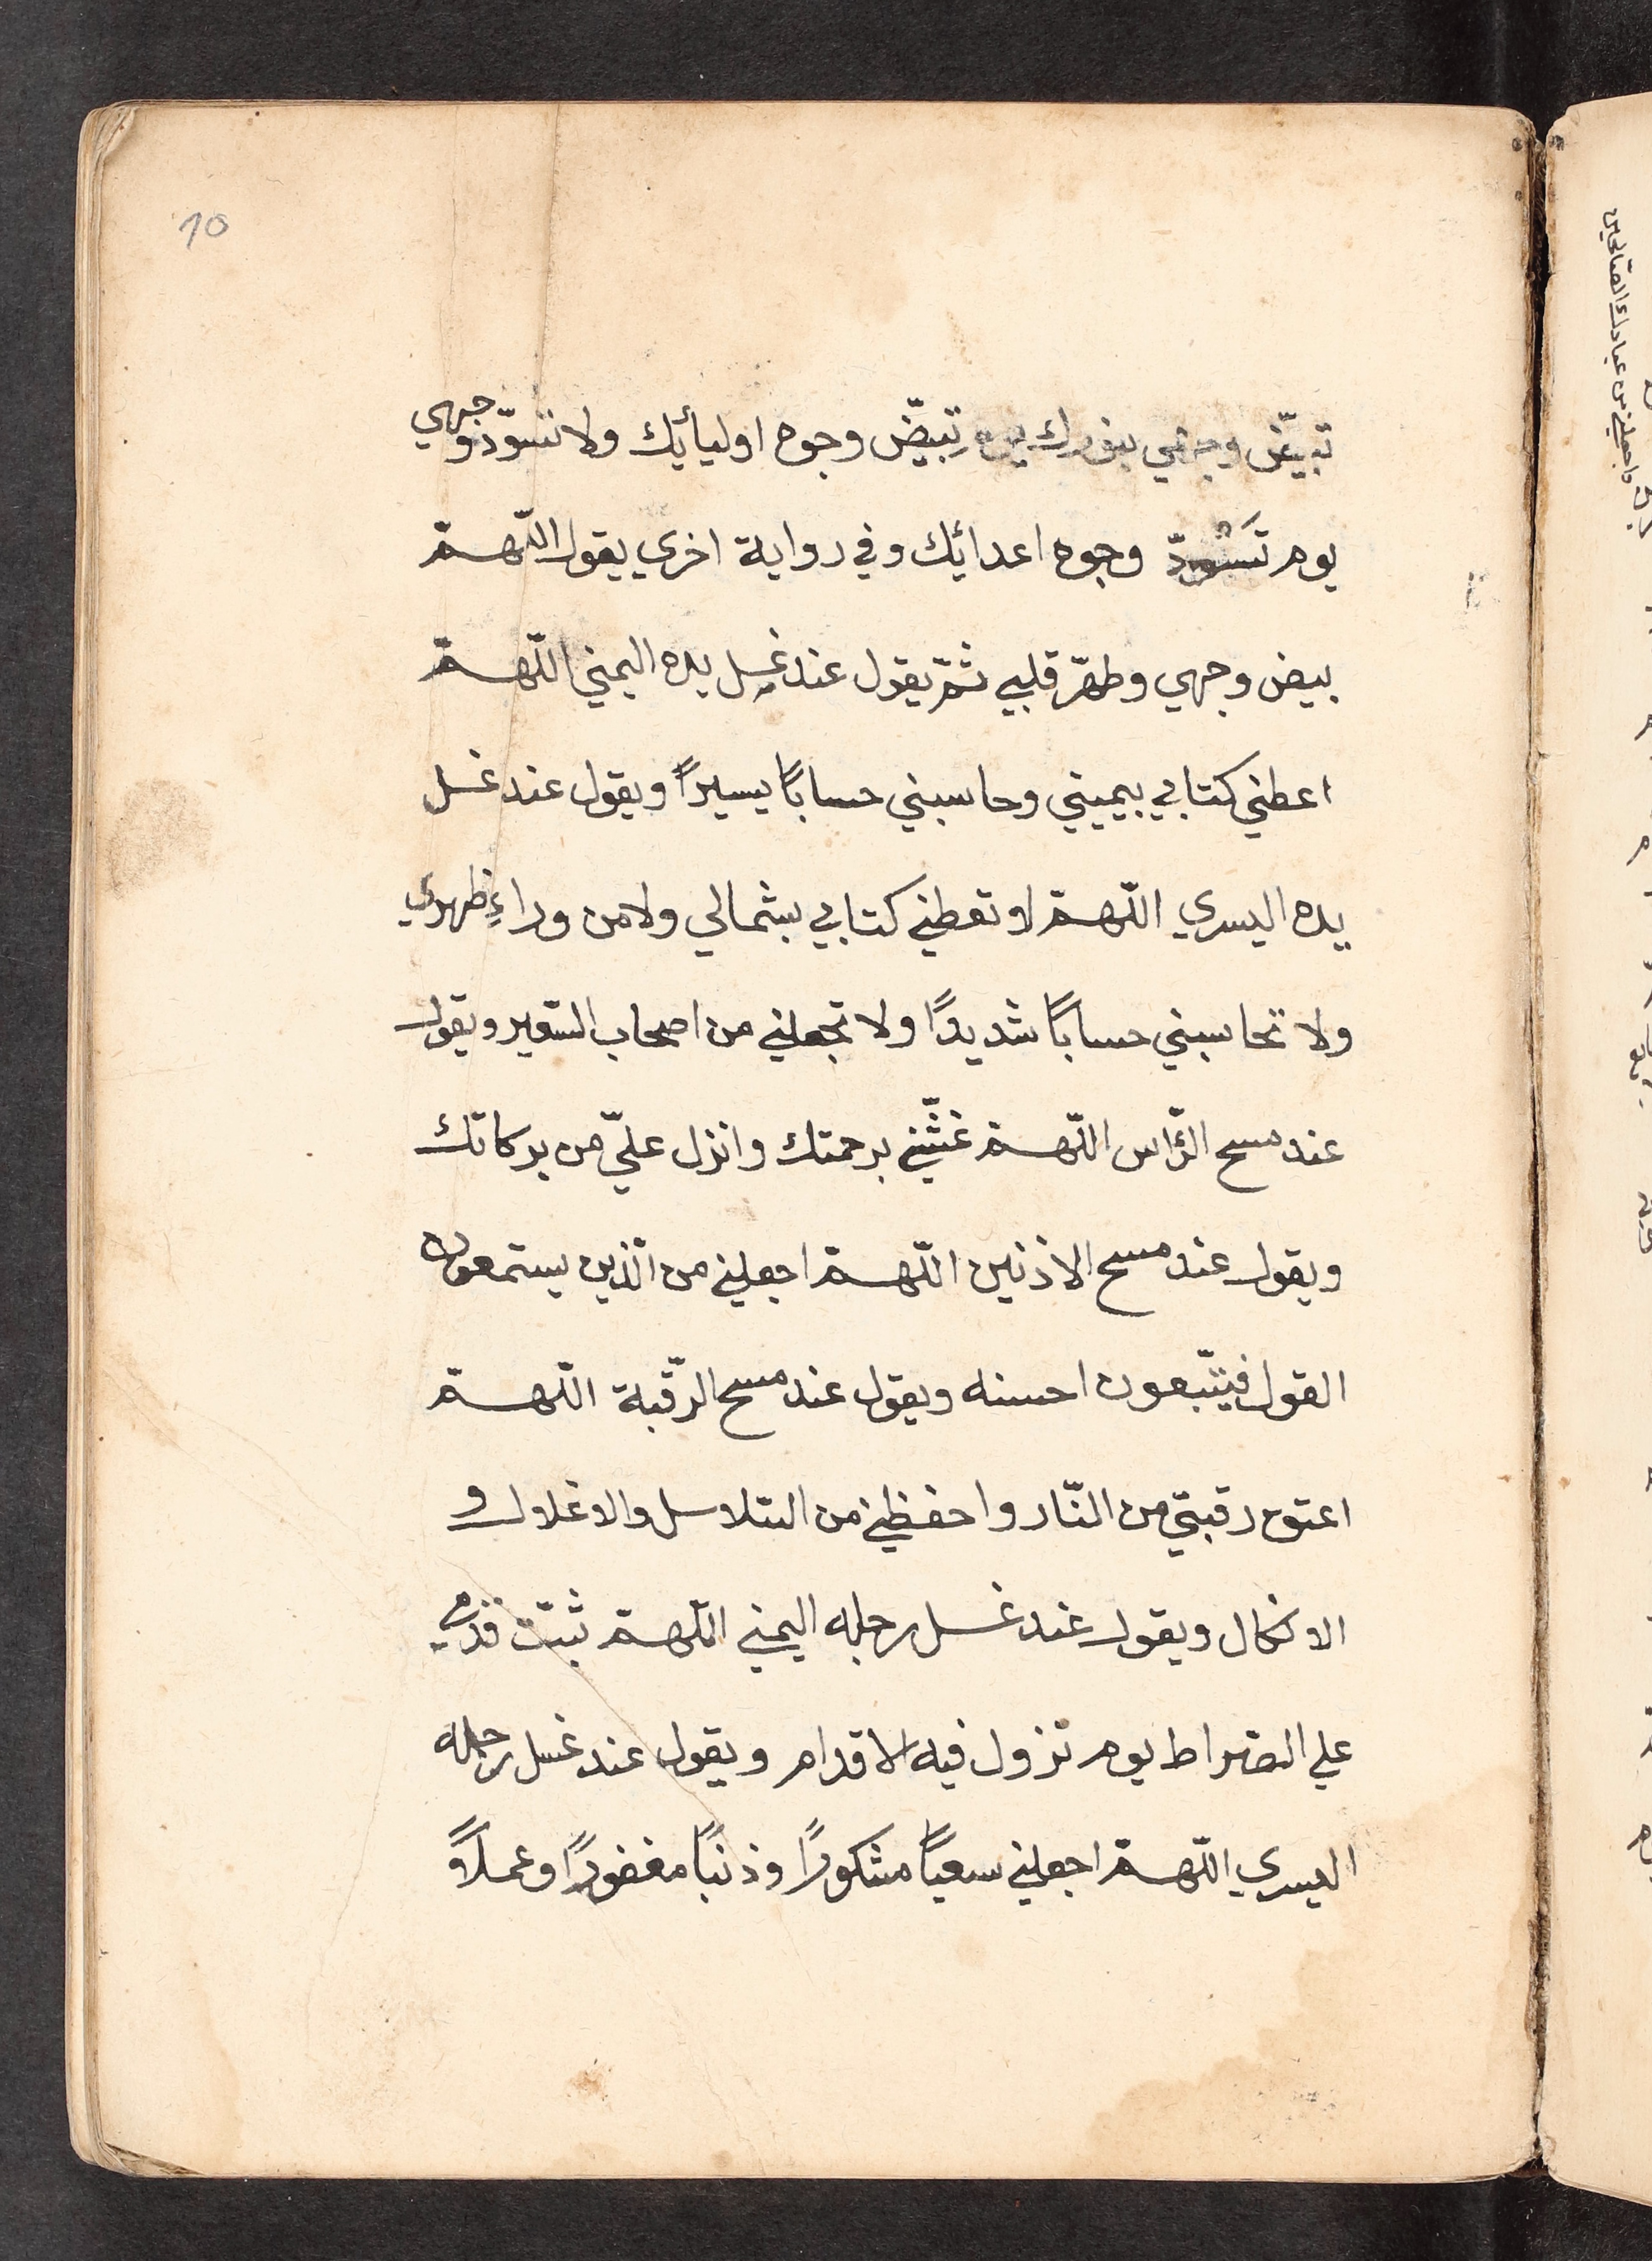 10
تبيّض وجهي بنورك يوم تبيّض وجوه اوليائك ولا تسوّد وجهي
يوم تسودّ وجوه اعدائك وفي رواية اخري يقول اللّهمّ
بيض وجهي وطهّر قلبي ثمّ يقول عند غسل يده اليمني اللّهمّ
اعطني كتابي بيميني وحاسبني حسابًا يسيرًا ويقول عند غسل
يده اليسري اللّهمّ لا تعطني كتابي بشمالي ولا من وراءِ ظهري
ولا تحاسبني حسابًا شديدًا ولا تجعلني من اصحاب السّعير ويقول
عند مسح الرّاس اللّهمّ غشّني برحمتك وانزل عليّ من بركاتك
ويقول عند مسح الاذنين اللّهمّ اجعلني من الّذين يستمعون
القول فيتّبعون احسنه ويقول عند مسح الرّقبة اللّهمّ
اعتق رقبتي من النّار واحفظني من السّلاسل والاغلال و
الانكال ويقول عند غسل رجله اليمني اللّهمّ ثبّت قدمي
علي الصّراط يوم تزول فيه الاقدام ويقول عند غسل رجله
اليسري اللّهمّ اجعلني سعيًا مشكورًا وذنبًا مغفورًا وعملاً و
واجعلني من عبادك الصّالحين